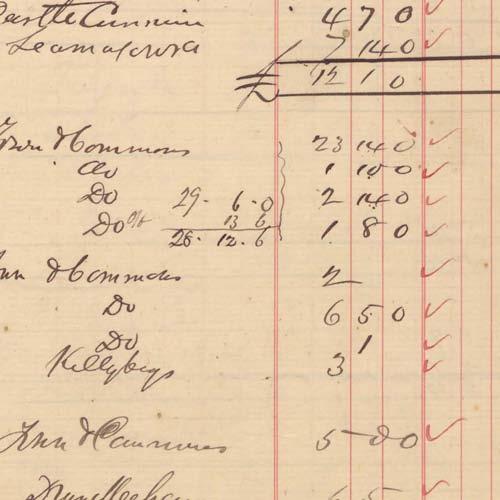 Castle Cunnin 4 7 0
7 14 0
£ 12 1 0
Town & Commons 23 14 0
Do 1 10 0
Do 29 . 6 . 0 2 14 0
Do % 13 6 1 8 0
28 . 12 . 6
& Commons 2
Do 6 5 0
Do 1
Killybegs 3
Town & Commons 5 0 0
6 5